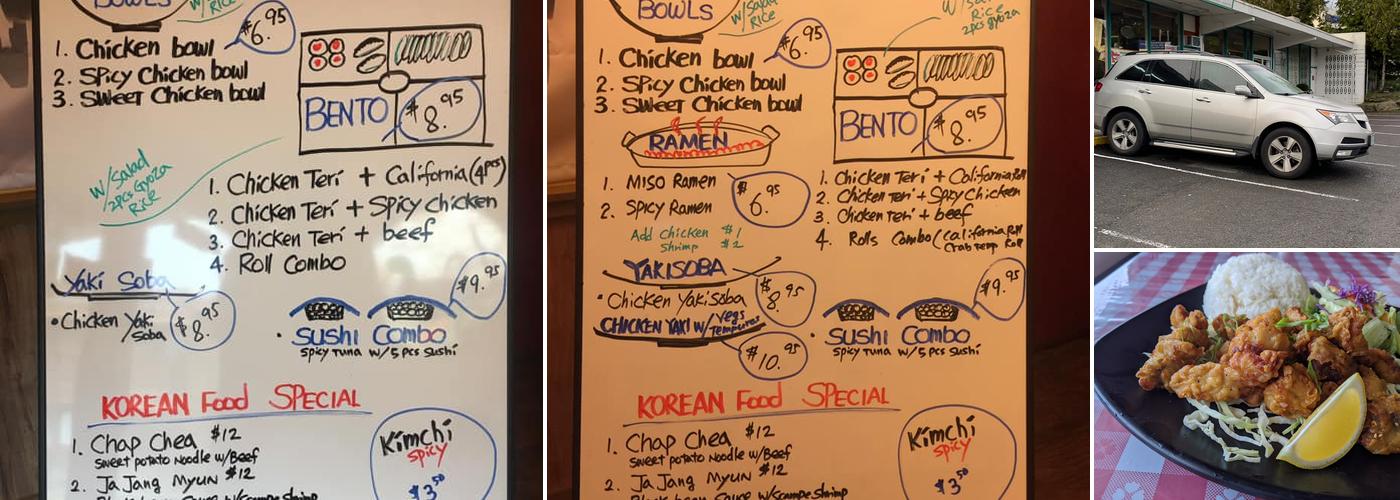 BOWLS
w/Salad
Rice
$6.95
1. Chicken bowl
2. Spicy Chicken bowl
3. Sweet Chicken bowl
BENTO
$8.95
w/Salad
2pcs Gyoza
Rice
1. Chicken Teri + California (4pcs)
2. Chicken Teri + Spicy Chicken
3. Chicken Teri + beef
4. Roll Combo
Yaki Soba
• Chicken Yaki
Soba
$8.95
$9.95
• Sushi Combo
Spicy Tuna w/5 pcs Sushi
KOREAN Food SPECIAL
1. Chap Chea $12
Sweet potato Noodle w/Beef
2. Ja Jang Myun $12
Kimchi
Spicy
$3.50
BOWLS
w/Salad
Rice
$6.95
1. Chicken bowl
2. Spicy Chicken bowl
3. Sweet Chicken bowl
w/Salad
Rice
2pcs gyoza
BENTO
$8.95
RAMEN
1. Miso Ramen
2. Spicy Ramen
$6.95
Add Chicken $1
Shrimp $2
1. Chicken Teri + California Roll
2. Chicken Teri + Spicy Chicken
3. Chicken Teri + beef
4. Rolls Combo (California Roll
Crab Temp Roll
YAKISOBA
• Chicken Yaki Soba
$8.95
CHICKEN YAKI W/ Vegs
Tempuras
$10.95
$9.95
• Sushi Combo
Spicy Tuna w/5 pcs Sushi
KOREAN Food SPECIAL
1. Chap Chea $12
Sweet potato Noodle w/Beef
2. Ja Jang Myun $12
Kimchi
Spicy
$3.50